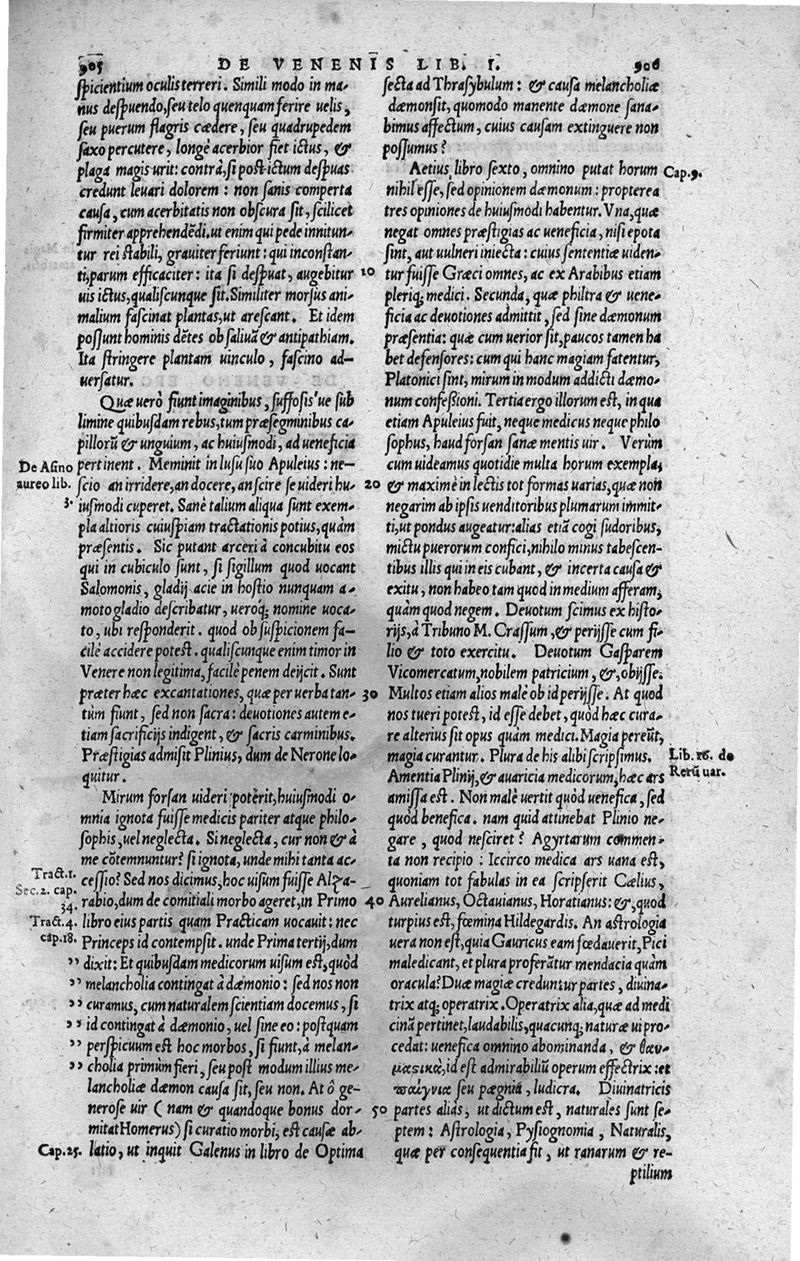 905
DE VENENIS LIB. I.
906
spicientium oculis terreri. Simili modo in ma-
nus despuendo, seu telo quenquam ferire uelis,
seu puerum flagris cædere, seu quadrupedem
saxo percutere, longè acerbior fiet ictus, &
plaga magis urit: contrà, si post ictum despuas
credunt leuari dolorem: non sanis comperta
causa, cum acerbitatis non obscura sit, scilicet
firmiter apprehendẽdi. ut enim qui pede innitun-
tur rei stabili, grauiter feriunt: qui inconstan-
ti, parum efficaciter: ita si despuat, augebitur
uis ictus, qualiscunque sit. Similiter morsus ani-
malium fascinat plantas, ut arescant. Et idem
possunt hominis dẽtes ob saliuã & antipathiam.
Ita stringere plantam uinculo, fascino ad-
uersatur.
Quæ uerò fiunt imaginibus, suffosis'ue sub
limine quibusdam rebus, tum præsegminibus ca-
pillorũ & unguium, ac huiusmodi, ad ueneficia
De Asino
aureo lib.
3.
pertinent. Meminit in lusu suo Apuleius: ne-
scio an irridere, an docere, an scire se uideri hu-
iusmodi cuperet. Sanè talium aliqua sunt exem-
pla altioris cuiuspiam tractationis potius, quàm
præsentis. Sic putant arceri à concubitu eos
qui in cubiculo sunt, si sigillum quod uocant
Salomonis, gladij acie in hostio nunquam a-
moto gladio describatur, ueroq́; nomine uoca-
to, ubi responderit. quod ob suspicionem fa-
cilè accidere potest. qualiscunque enim timor in
Venere non legitima, facilè penem deijcit. Sunt
præter hæc excantationes, quæ per uerba tan-
tùm fiunt, sed non sacra: deuotiones autem e-
tiam sacrificijs indigent, & sacris carminibus.
Præstigias admisit Plinius, dum de Nerone lo-
quitur.
Mirum forsan uideri poterit, huiusmodi o-
mnia ignota fuisse medicis pariter atque philo-
sophis, uel neglecta. Si neglecta, cur non & à
me cõtemnuntur? si ignota, unde mihi tanta ac-
Tract. 1.
Sec. 2. cap.
34.
Tract. 4.
cap. 18.
cessio? Sed nos dicimus, hoc uisum fuisse Alza-
rabio, dum de comitiali morbo ageret, in Primo
libro eius partis quam Practicam uocauit: nec
Princeps id contempsit. unde Prima tertij, dum
" dixit: Et quibusdam medicorum uisum est, quòd
" melancholia contingat à dæmonio: sed nos non
" curamus, cum naturalem scientiam docemus, si
" id contingat à dæmonio, uel sine eo: postquam
" perspicuum est hoc morbos, si fiunt, à melan-
" cholia primùm fieri, seu post modum illius me-
lancholiæ dæmon causa sit, seu non. At ô ge-
nerose uir (nam & quandoque bonus dor-
mitat Homerus) si curatio morbi, est causæ ab-
Cap. 25.
latio, ut inquit Galenus in libro de Optima
secta ad Thrasybulum: & causa melancholiæ
dæmon sit, quomodo manente dæmone sana-
bimus affectum, cuius causam extinguere non
possumus?
Aetius libro sexto, omnino putat horum
Cap. 9.
nihil esse, sed opinionem dæmonum: propterea
tres opiniones de huiusmodi habentur. Vna, quæ
negat omnes præstigias ac ueneficia, nisi epota
sint, aut uulneri iniecta: cuius sententiæ uiden-
10
tur fuisse Græci omnes, ac ex Arabibus etiam
pleriq; medici. Secunda, quæ philtra & uene-
ficia ac deuotiones admittit, sed sine dæmonum
præsentia: quæ cum uerior sit, paucos tamen ha
bet defensores: cum qui hanc magiam fatentur,
Platonici sint, mirum in modum addicti dæmo-
num confeßioni. Tertia ergo illorum est, in qua
etiam Apuleius fuit, neque medicus neque philo
sophus, haud forsan sanæ mentis uir. Verùm
cum uideamus quotidie multa horum exempla,
20
& maximè in lectis tot formas uarias, quæ non
negarim ab ipsis uenditoribus plumarum immit-
ti, ut pondus augeatur: alias etiã cogi sudoribus,
mictu puerorum confici, nihilo minus tabescen-
tibus illis qui in eis cubant, & incerta causa &
exitu, non habeo tam quod in medium afferam,
quàm quod negem. Deuotum scimus ex histo-
rijs, à Tribuno M. Crassum, & perijsse cum fi-
lio & toto exercitu. Deuotum Gasparem
Vicomercatum, nobilem patricium, &, obijsse.
30
Multos etiam alios malè ob id perijsse. At quod
nos tueri potest, id esse debet, quòd hæc cura-
re alterius sit opus quàm medici. Magia pereũt,
magia curantur. Plura de his alibi scripsimus.
Lib. 16. de
Rerũ uar.
Amentia Plinij, & auaricia medicorum, hæc ars
amissa est. Non malè uertit quòd uenefica, sed
quòd benefica. nam quid attinebat Plinio ne-
gare, quod nesciret? Agyrtarum commen-
ta non recipio: Iccirco medica ars uana est,
quoniam tot fabulas in ea scripserit Cælius,
40
Aurelianus, Octauianus, Horatianus: &, quod
turpius est, fœmina Hildegardis. An astrologia
uera non est, quia Gauricus eam fœdauerit, Pici
maledicant, et plura proferãtur mendacia quàm
oracula? Duæ magiæ creduntur partes, diuina-
trix atq; operatrix. Operatrix alia, quæ ad medi
cinã pertinet, laudabilis, quacunq; naturæ ui pro-
cedat: uenefica omnino abominanda, & θαυ-
μασικὰ, id est admirabiliũ operum effectrix: et
παίγνια seu pægnia, ludicra. Diuinatricis
50
partes aliàs, ut dictum est, naturales sunt se-
ptem: Astrologia, Pysiognomia, Naturalis,
quæ per consequentia fit, ut ranarum & re-
ptilium